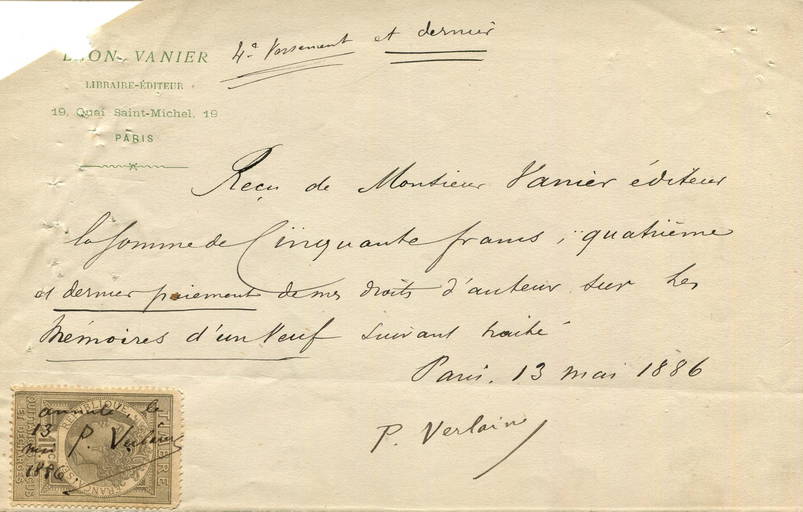 LÉON VANIER
LIBRAIRE-ÉDITEUR
19, Quai Saint-Michel, 19
PARIS
4e Versement et dernier
Reçu de Monsieur Vanier éditeur
la somme de Cinquante francs, quatrième
et dernier paiement de mes droits d'auteur sur les
Mémoires d'un Veuf suivant traité
Paris, 13 mai 1886
P. Verlaine
annulé le
13 P. Verlaine
mai
1886
TIMBRE
RÉPUBLIQUE FRANÇAISE
QUITTANCES REÇUS
ET DÉCHARGES
10